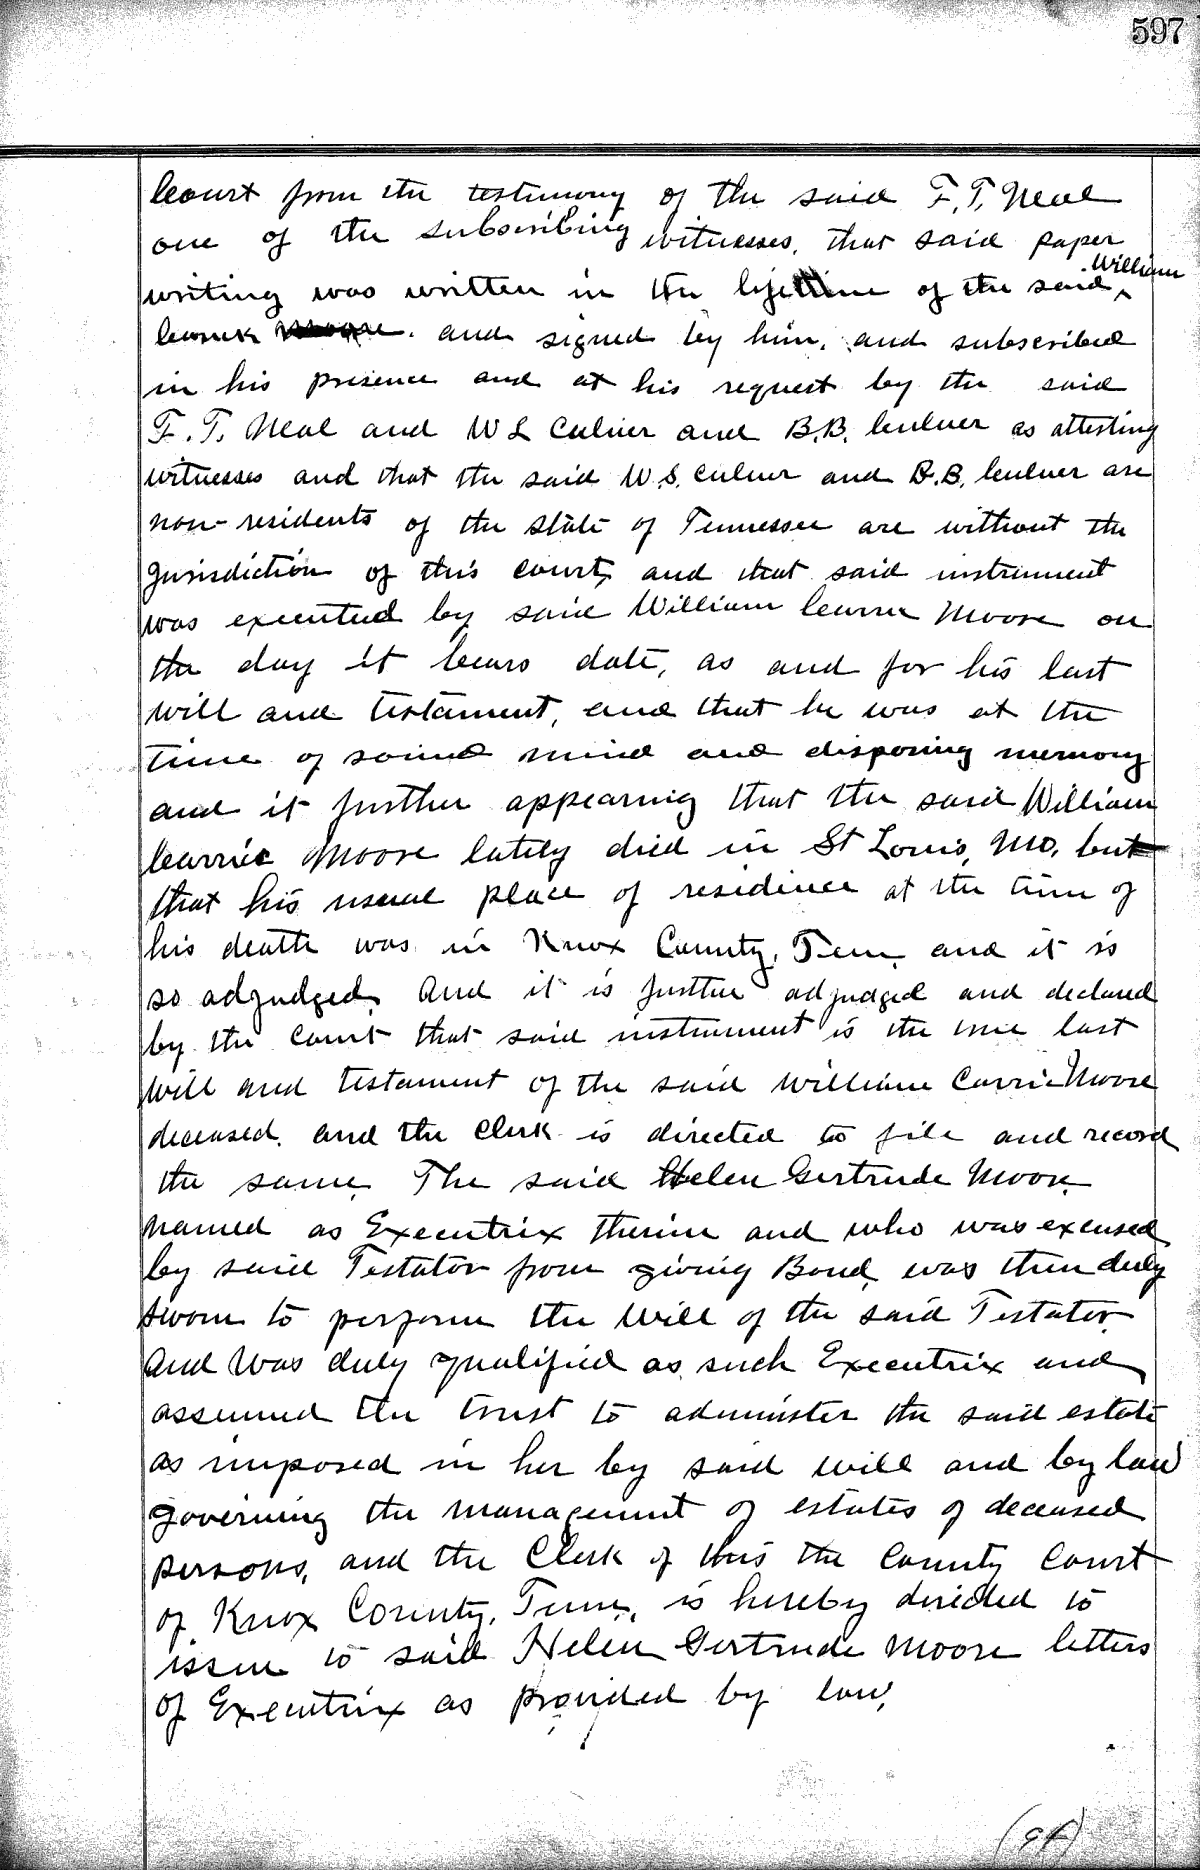 597
Court from the testimony of the said F. T. Neal
one of the subscribing witnesses, that said paper
writing was written in the lifetime of the said William
Carrick Moore. and signed by him, and subscribed
in his presence and at his request by the said
F. T. Neal and W L Culver and B. B. Culver as attesting
witnesses and that the said W. S. Culver and B. B. Culver are
non-residents of the state of Tennessee are without the
Jurisdiction of this court, and that said instrument
was executed by said William Carric Moore on
the day it bears date, as and for his last
will and testament, and that he was at the
time of sound mind and disposing memory
and it further appearing that the said William
Carric Moore lately died in St Louis, Mo, but
that his usual place of residence at the time of
his death was in Knox County, Tenn, and it is
so adjudged, And it is further adjudged and declared
by the Court that said instrument is the true last
will and testament of the said William Carric Moore
deceased, and the Clerk is directed to file and record
the same, The said Helen Gertrude Moore
named as Executrix therein and who was excused
by said Testator from giving Bond, was then duly
sworn to perform the Will of the said Testator
and was duly qualified as such Executrix and
assumed the trust to administer the said estate
as imposed in her by said will and by law
governing the management of estates of deceased
persons, and the Clerk of this the County Court
of Knox County, Tenn, is hereby directed to
issue to said Helen Gertrude Moore letters
of Executrix as provided by law,